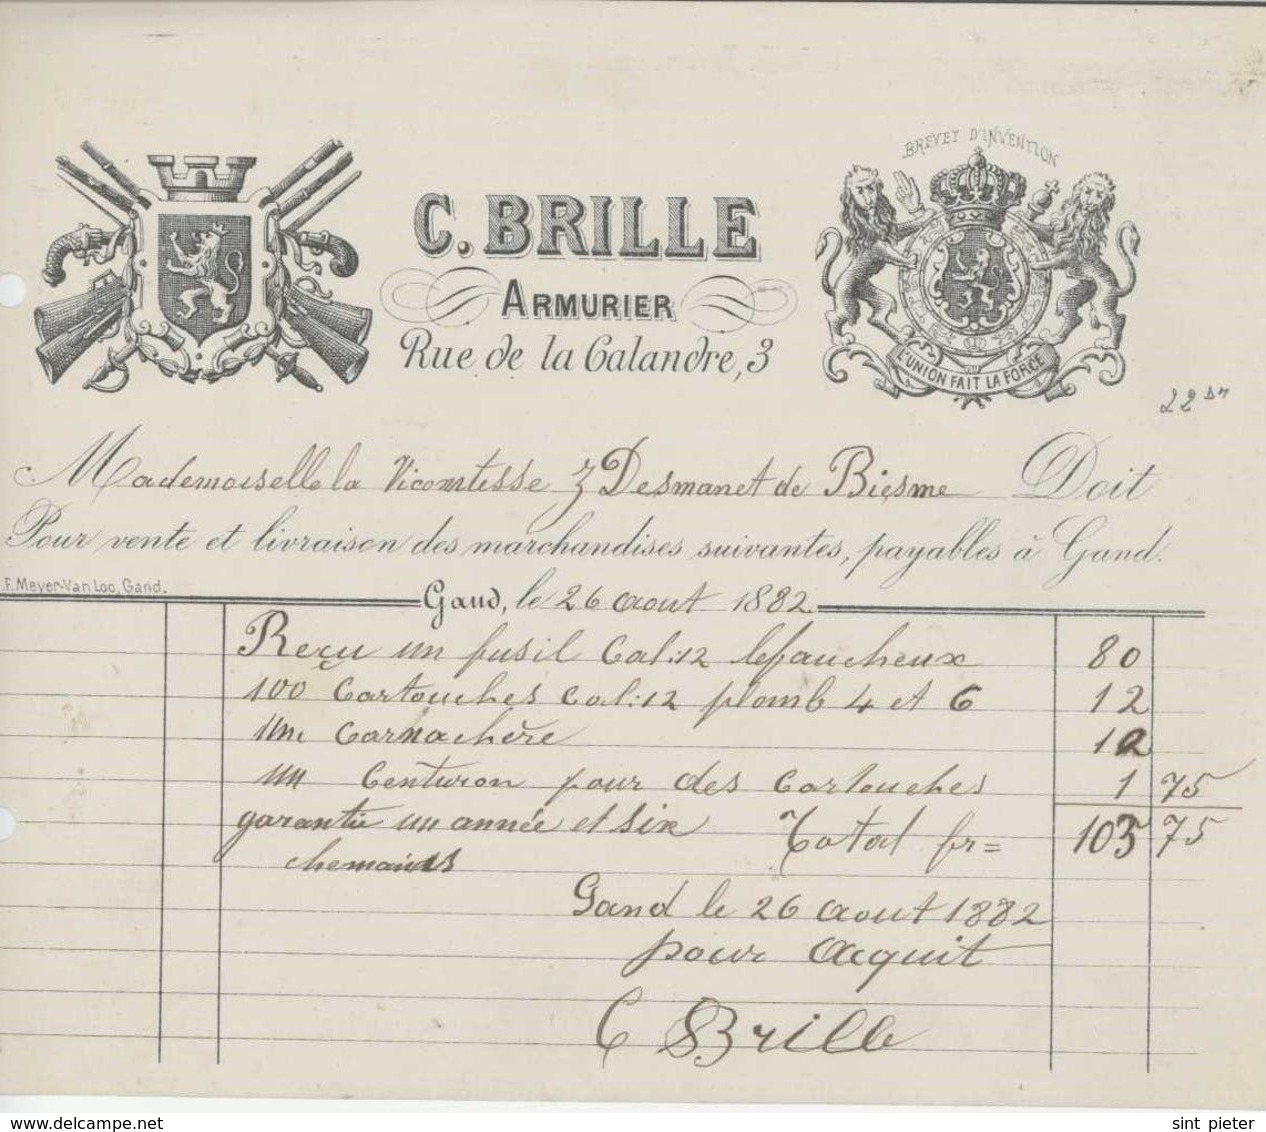 BREVET D'INVENTION
C. BRILLE
ARMURIER
Rue de la Calandre, 3
L'UNION FAIT LA FORCE
Mademoiselle la Vicomtesse Desmanet de Biesme Doit
Pour vente et livraison des marchandises suivantes, payables à Gand.
F. Meyer-Van Loo, Gand.
Gand, le 26 aout 1882
Reçu un fusil Cal:12 lefaucheux 80
100 Cartouches Cal:12 plomb 4 et 6 12
une Carnachère
un Centuron pour des Cartouches 1 75
garantie un année et six Total fr= 105 75
Gand le 26 aout 1882
pour Acquit
C Brille
delcampe.net
sint_pieter